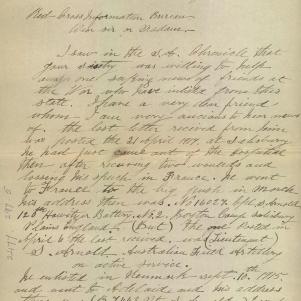 Red Cross Information Bureau
I saw in the S.A. Chronicle that
your society was willing to help
any one seeking news of friends at
the War who have enlisted from this
state. I have a very dear friend
whom I am very anxious to hear news
of. the last letter received from him
was posted the 21 April 1917, at Salisbury
he had just come out of the hospital
there after receiving two wounds and
losing his speech in France. he went
to France to the big push in March
his address then was. No 16027. Gpl. S Arnold
Howitzer Battery, No 2. Boston Camp Salisbury
Plains England. (But) the one Posted in
April 6 the last received, was (Lieutenant)
S Arnold. Australian Field Artillery
on active service.
he enlisted in Sept. 10th 1915
and went to Adelaide and his address